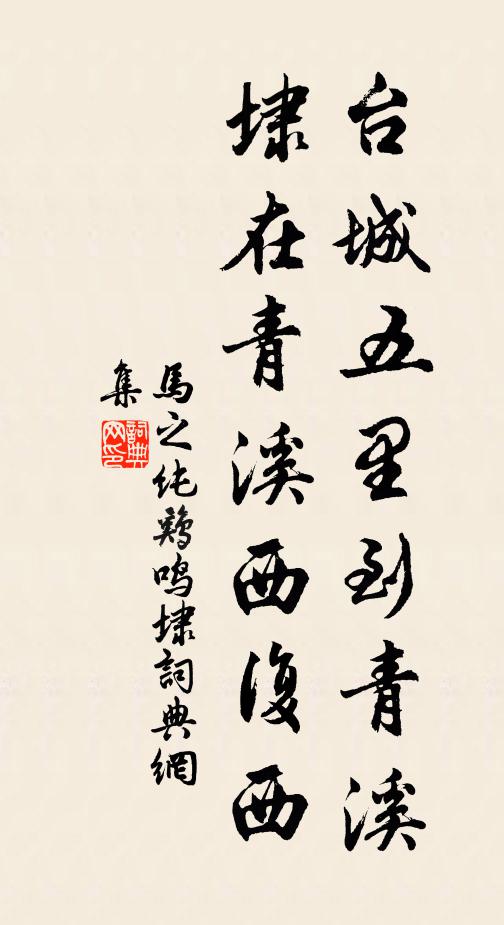 台城五里到青溪
埭在青溪西復西
馬之純鷄鳴埭詞典網
集
詞典网印